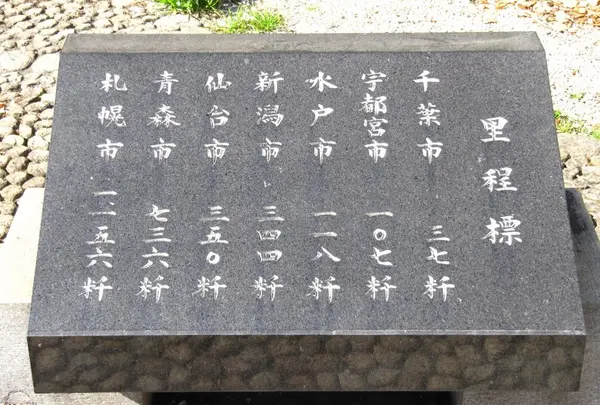 里程標
千葉市 三七粁
宇都宮市 一〇七粁
水戸市 一一八粁
新潟市 三四四粁
仙台市 三五〇粁
青森市 七三六粁
札幌市 一、一五六粁